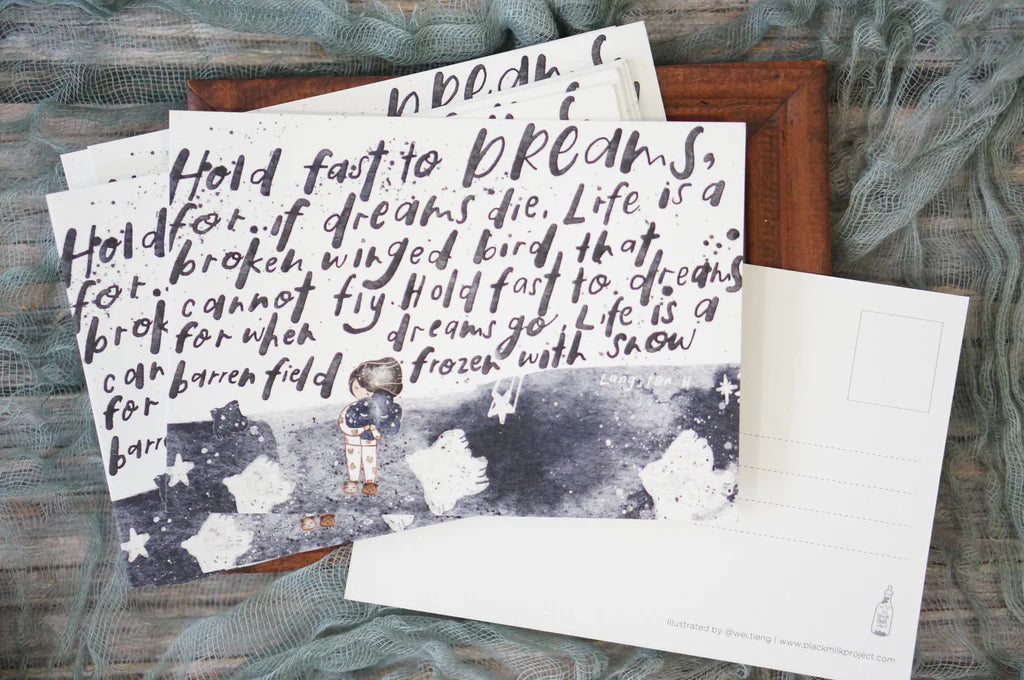 DREAMS
Hold
for.
brok
can
for
barr
Hold fast to DREAMS,
for. if dreams die. Life is a
broken winged bird that
cannot fly. Hold fast to dreams
for when dreams go. Life is a
barren field frozen with snow
Langston H
illustrated by @wei.tieng | www.blackmilkproject.com